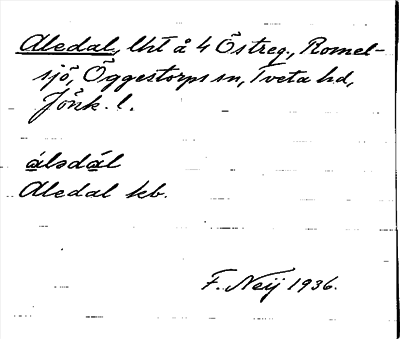 Aledal, lht å 4 Östreg., Romel-
sjö, Öggestorps sn, Tveta hd,
Jönk. l.
álsdál
Aledal kb.
F. Neij 1936.